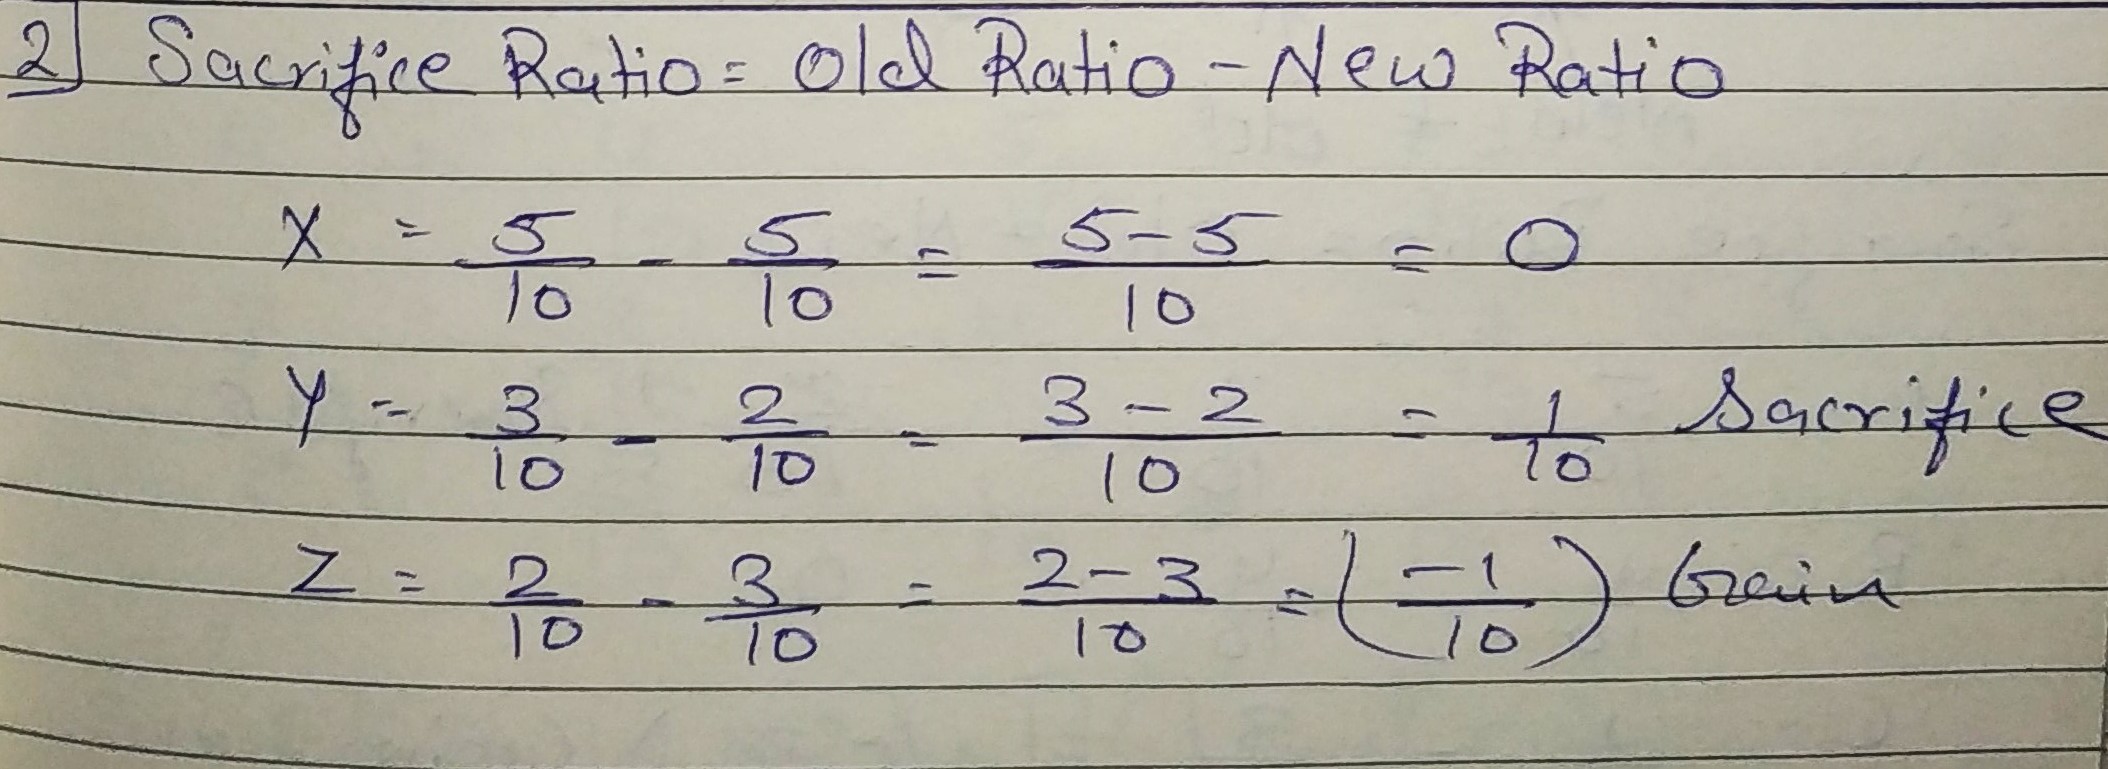 2 Sacrifice Ratio = Old Ratio - New Ratio
X = 5/10 - 5/10 = 5-5/10 = 0
Y = 3/10 - 2/10 = 3-2/10 = 1/10 Sacrifice
Z = 2/10 - 3/10 = 2-3/10 = (-1/10) Gain